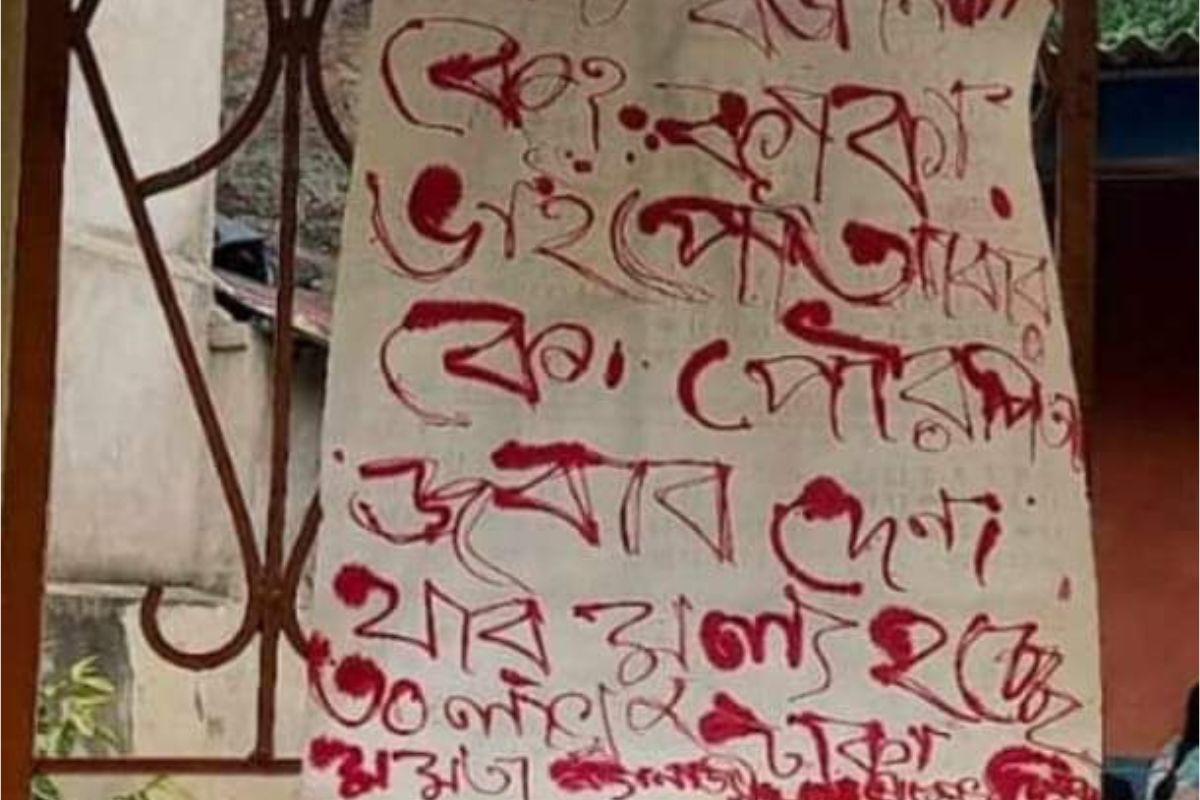 কেন? কাকা
ভাইপো আবার
কেন। পৌরপিতা
জবাব দেন।
যার মূল্য হচ্ছে
৩০ লাখ টাকা
মমতা